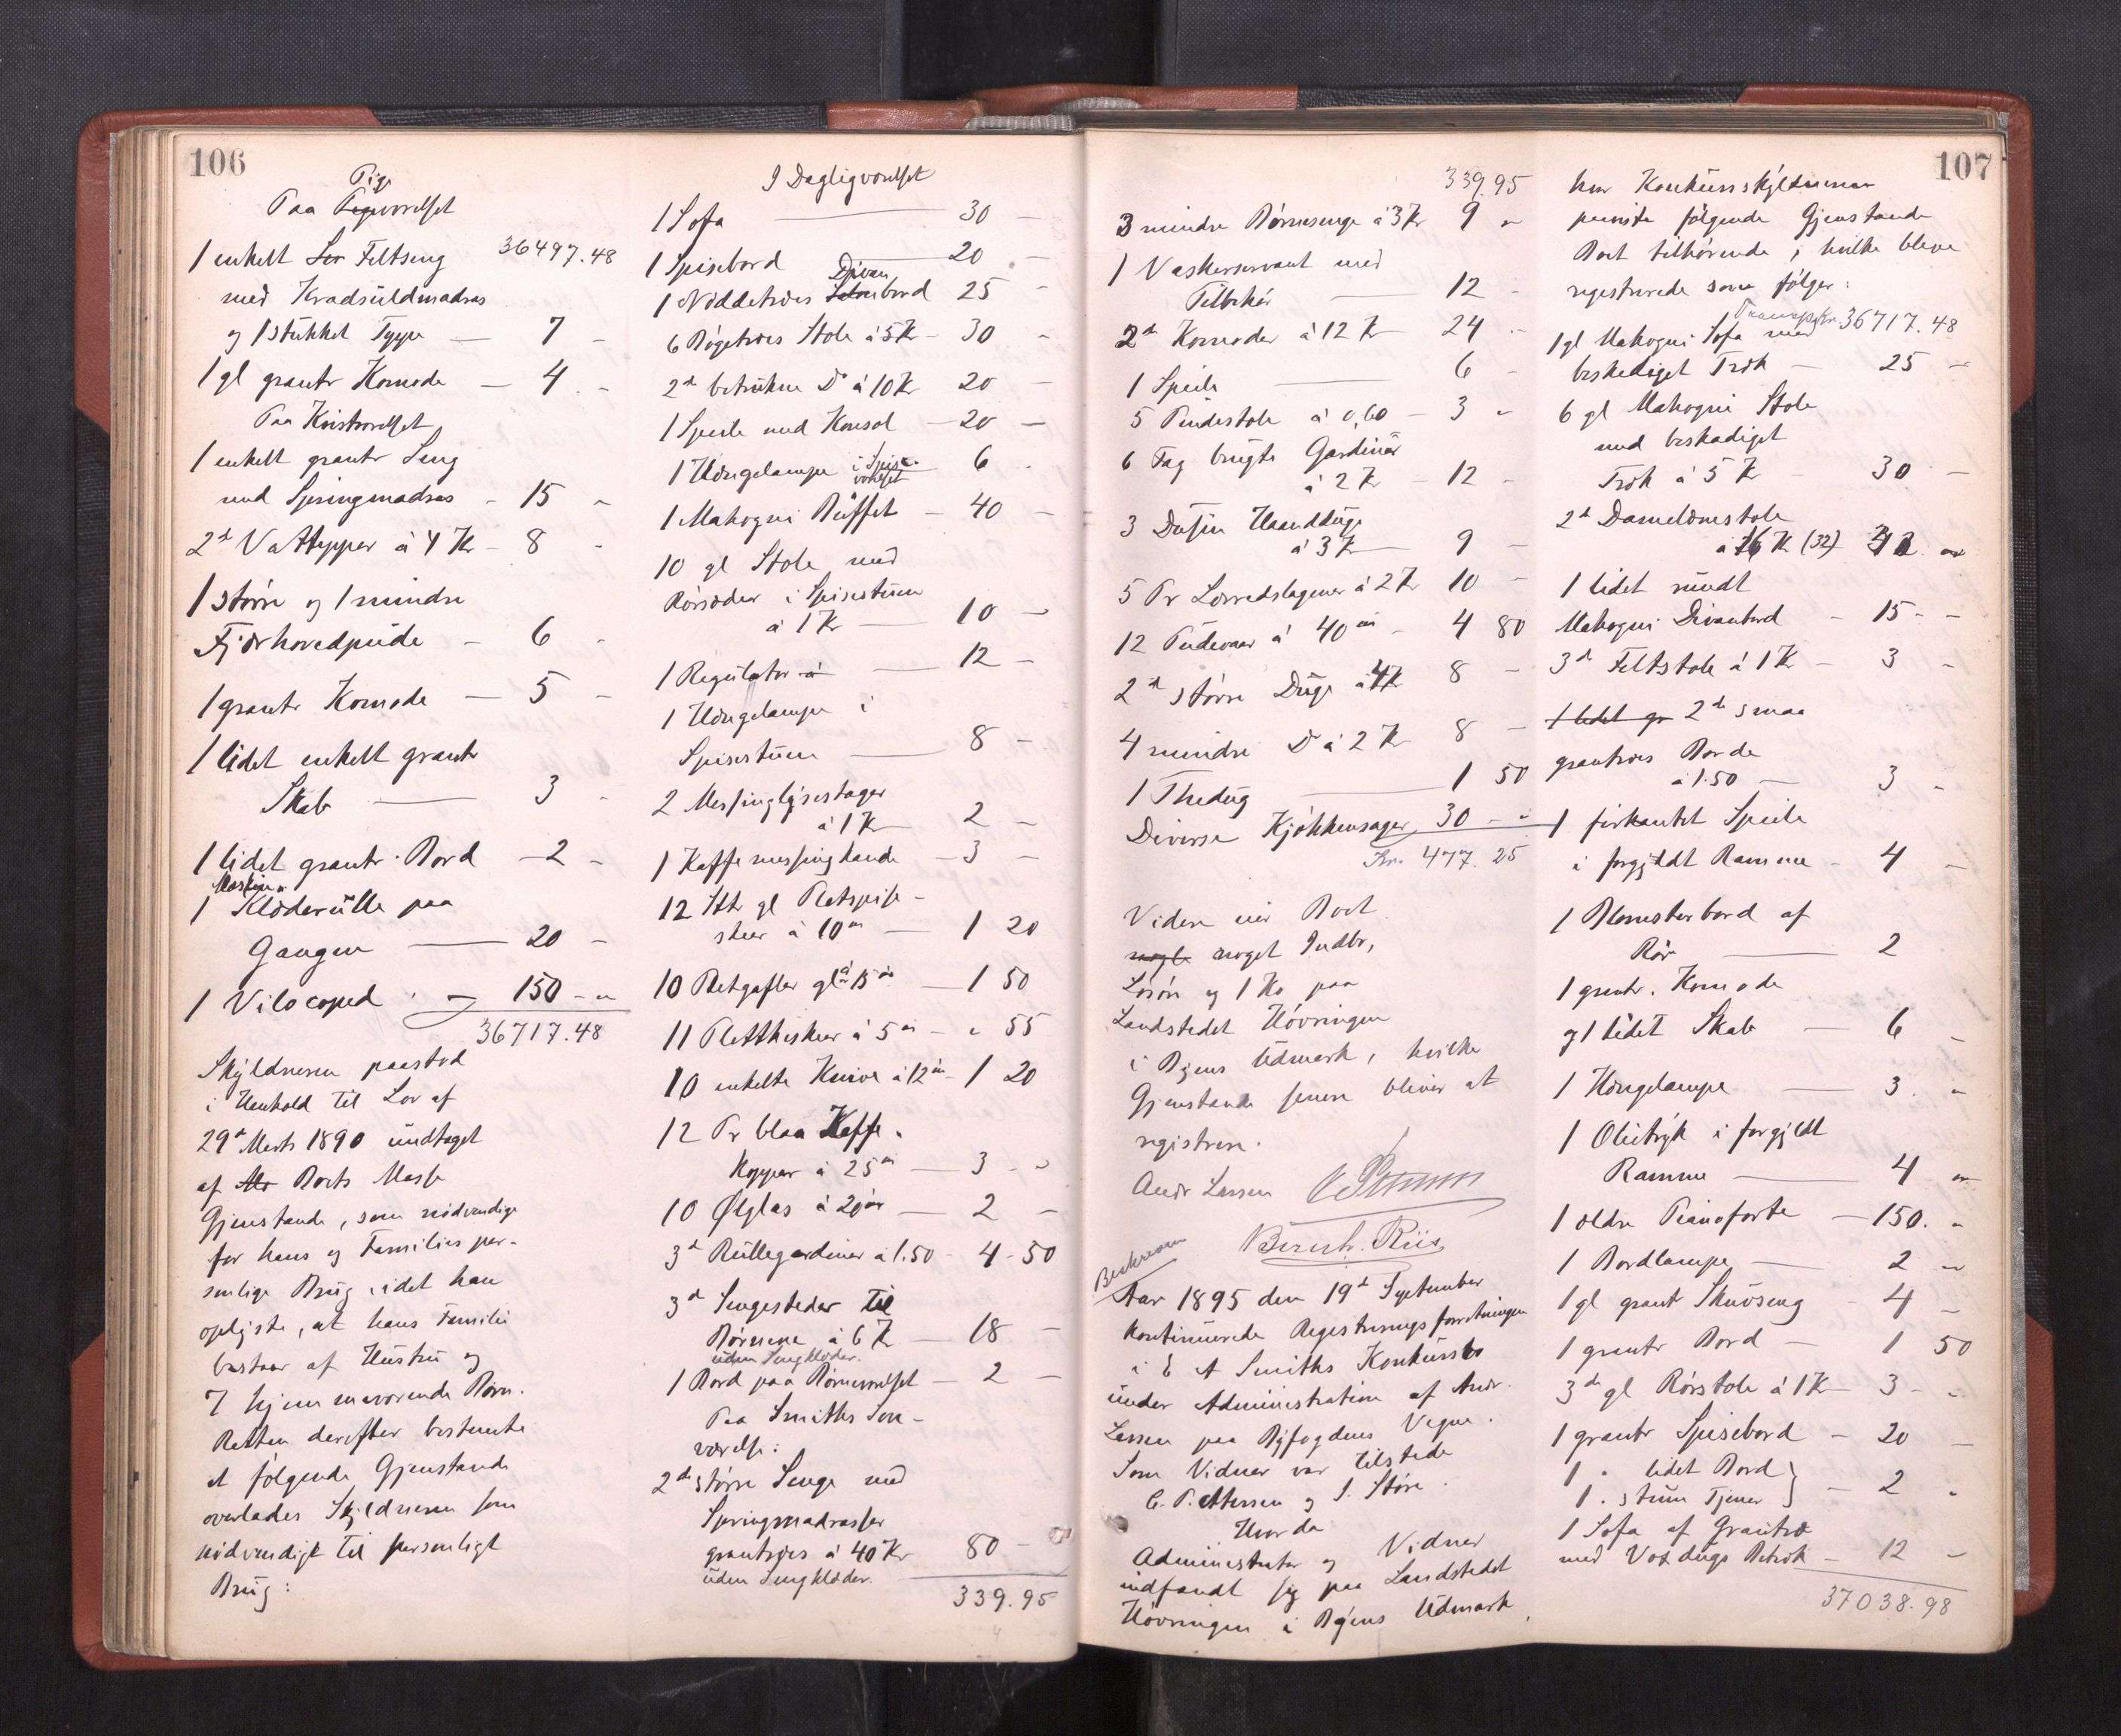 106
Pige
Paa Pigeværelset
1 enkelt Feltseng 36497.48
med Kradsuldmadras
og 1 stukket Teppe — 7 -
1 gl grantr Komode — 4 -
Paa Kvistværelset
1 enkelt grantr Seng
med Springmadras - 15 -
2de Vattepper á 4 Kr - 8 -
1 større og 1 mindre
Fjærhovedpude - 6 -
1 grantr Komode — 5 -
1 lidet enkelt grantr
Skab — 3 -
1 lidet grantr. Bord - 2 -
Maskin-
1 Klæderulle paa
Gangen — 20 -
1 Velocoped - 150 - -
36717.48
Skyldneren paastod
i Henhold til Lov af
29de Marts 1890 undtaget
af Boets Masse
Gjenstande, som nødvendige
for hans og Families per-
sonlige Brug, idet han
oplyste, at hans Familie
bestaar af Hustru og
7 hjemmeværende Børn.
Retten derefter bestemte
at følgende Gjenstande
overlades Skyldneren som
nødvendigt til personligt
Brug:
I Dagligværelset
1 Sofa — 30 -
1 Spisebord — 20 -
Divan
1 Nøddetræs Salonbord 25 -
6 Bøgetræs Stole á 5 Kr - 30 -
2de betrukne Do á 10 Kr 20 -
1 Speile med Konsol - 20 -
1 Hængelampe i Spise-
værelset 6 -
1 Mahogni Buffet - 40 -
10 gl Stole med
Rørsæder i Spisestuen
á 1 Kr — 10 -
1 Regulator á — 12 -
1 Hængelampe i
Spisestuen — 8 -
2 Messinglysestager
á 1 Kr 2 -
1 Kaffemessingkande - 3 -
12 Stk gl Pletspise-
skeer á 10 øre — 1 20
10 Pletgafler gl á 15 øre — 1 50
11 Pletteskeer á 5 øre - " 55
10 enkelte Knive á 12 øre - 1 20
12 Pr blaa Kaffe-
kopper á 25 øre — 3 - -
10 Ølglas á 20 ør — 2 -
3de Rullegardiner á 1.50 - 4 - 50
3de Sengesteder til
Børnene á 6 Kr — 18 -
uden Sengklæder.
1 Bord paa Børneværelset - 2 -
Paa Smiths Sov-
værelse:
2de større Senge med
Springmadrasser
grantræs á 40 Kr 80 -
uden Sengklæder.
339.95
107
339.95
3 mindre Børnesenge á 3 Kr 9 "
1 Vaskeservant med
Tilbehør — 12 -
2de Komoder á 12 Kr — 24 -
1 Speile — 6 -
5 Pindestole á 0,60 - 3 "
6 Fag brugte Gardiner
á 2 Kr - 12 -
3 Dusin Haandduge
á 3 Kr — 9 -
5 Pr Lærredslagener á 2 Kr 10 -
12 Pudevaar á 40 øre - 4 80
2de større Duge á 4 Kr 8 -
4 mindre Do á 2 Kr 8 -
1 Thedug — 1 50
Diverse Kjøkkensager 30 - "
Kr. 477.25
Videre eier Boet
nogle noget Indbo,
Løsøre og 1 Ko paa
Landstedet Høvringen
i Byens Udmark, hvilke
Gjenstande senere bliver at
registrere.
Andr Larsen
Bernh. Riis
Beskreven
Aar 1895 den 19de September
kontinuerede Registreringsforretningen
i E A Smiths Konkursbo
under Administration af Andr.
Larsen paa Byfogdens Vegne.
Som Vidner var tilstede
C. Pettersen og S. Støre.
Hvorda
Administrator og Vidner
indfandt sig paa Landstedet
Høvringen i Byens Udmark,
hvor Konkursskyldneren
paaviste følgende Gjenstande
Boet tilhørende, hvilke bleve
registrerede som følger:
Transport Kr. 36717.48
1 gl Mahogni Sofa med
beskadiget Træk — 25 -
6 gl Mahogni Stole
med beskadiget
Træk á 5 Kr - 30 -
2de Damelænestole
á 16 Kr (32) 32 "
1 lidet rundt
Mahogni Divanbord - 15 - -
3de Feltstole á 1 Kr - 3 -
1 lidet gr 2de smaa
grantræs Borde
á 1.50 — 3 -
1 firkantet Speile
i forgyldt Ramme - 4 -
1 Blomsterbord af
Rør — 2
1 grantr. Komode
og 1 lidet Skab — 6 -
1 Hængelampe — 3 "
1 Olietryk i forgyldt
Ramme — 4 "
1 ældre Pianoforte — 150. "
1 Bordlampe — 2 "
1 gl grantr Skuvseng - 4 -
1 grantr Bord — 1 50
3de gl Rørstole á 1 Kr - 3 - -
1 grantr Spisebord - 20 -
1 " lidet Bord }
1 " stum Tjener } - 2 "
1 Sofa af Grantræ
med Voxdugs Betræk - 12 -
37038.98